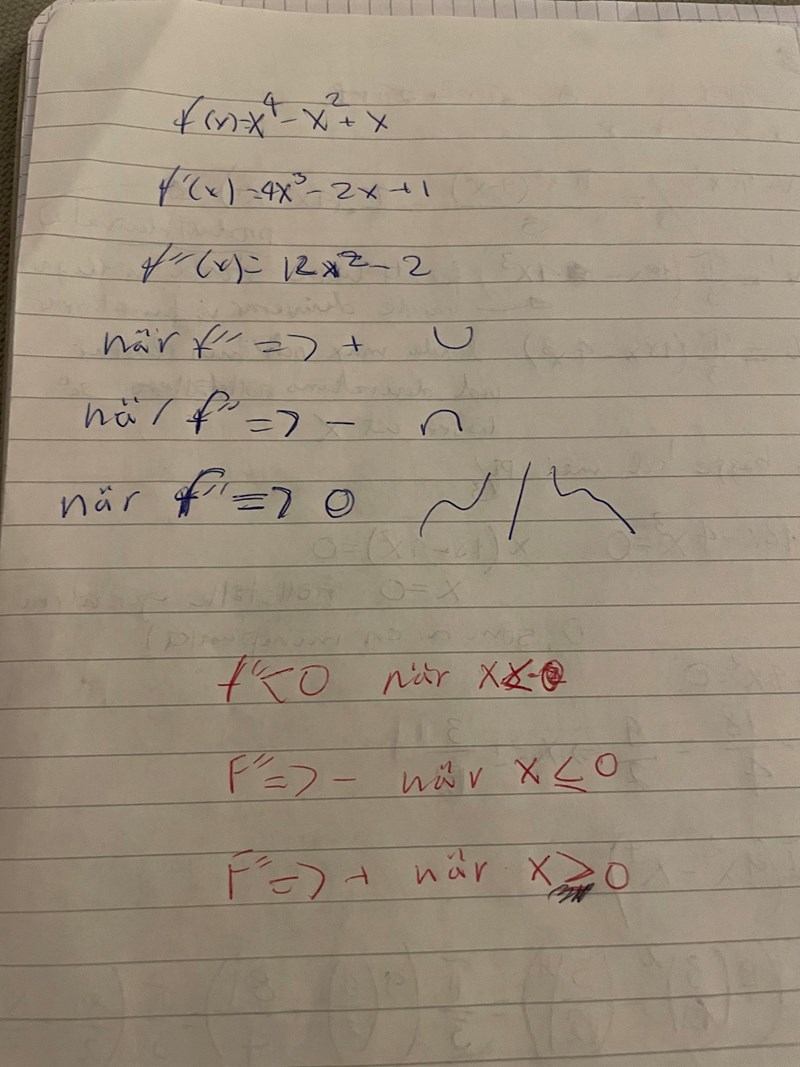 f(x)=x⁴-x²+x
f'(x)=4x³-2x+1
f''(x)=12x²-2
när f'' => + ∪
när f'' => - ∩
när f'' => 0
f'<0 när x
F''=> - när x ≤ 0
F''=> + när x ≥ 0